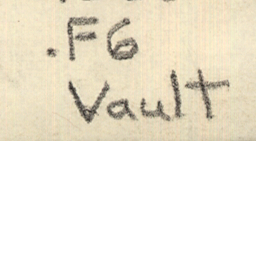 .F6
Vault